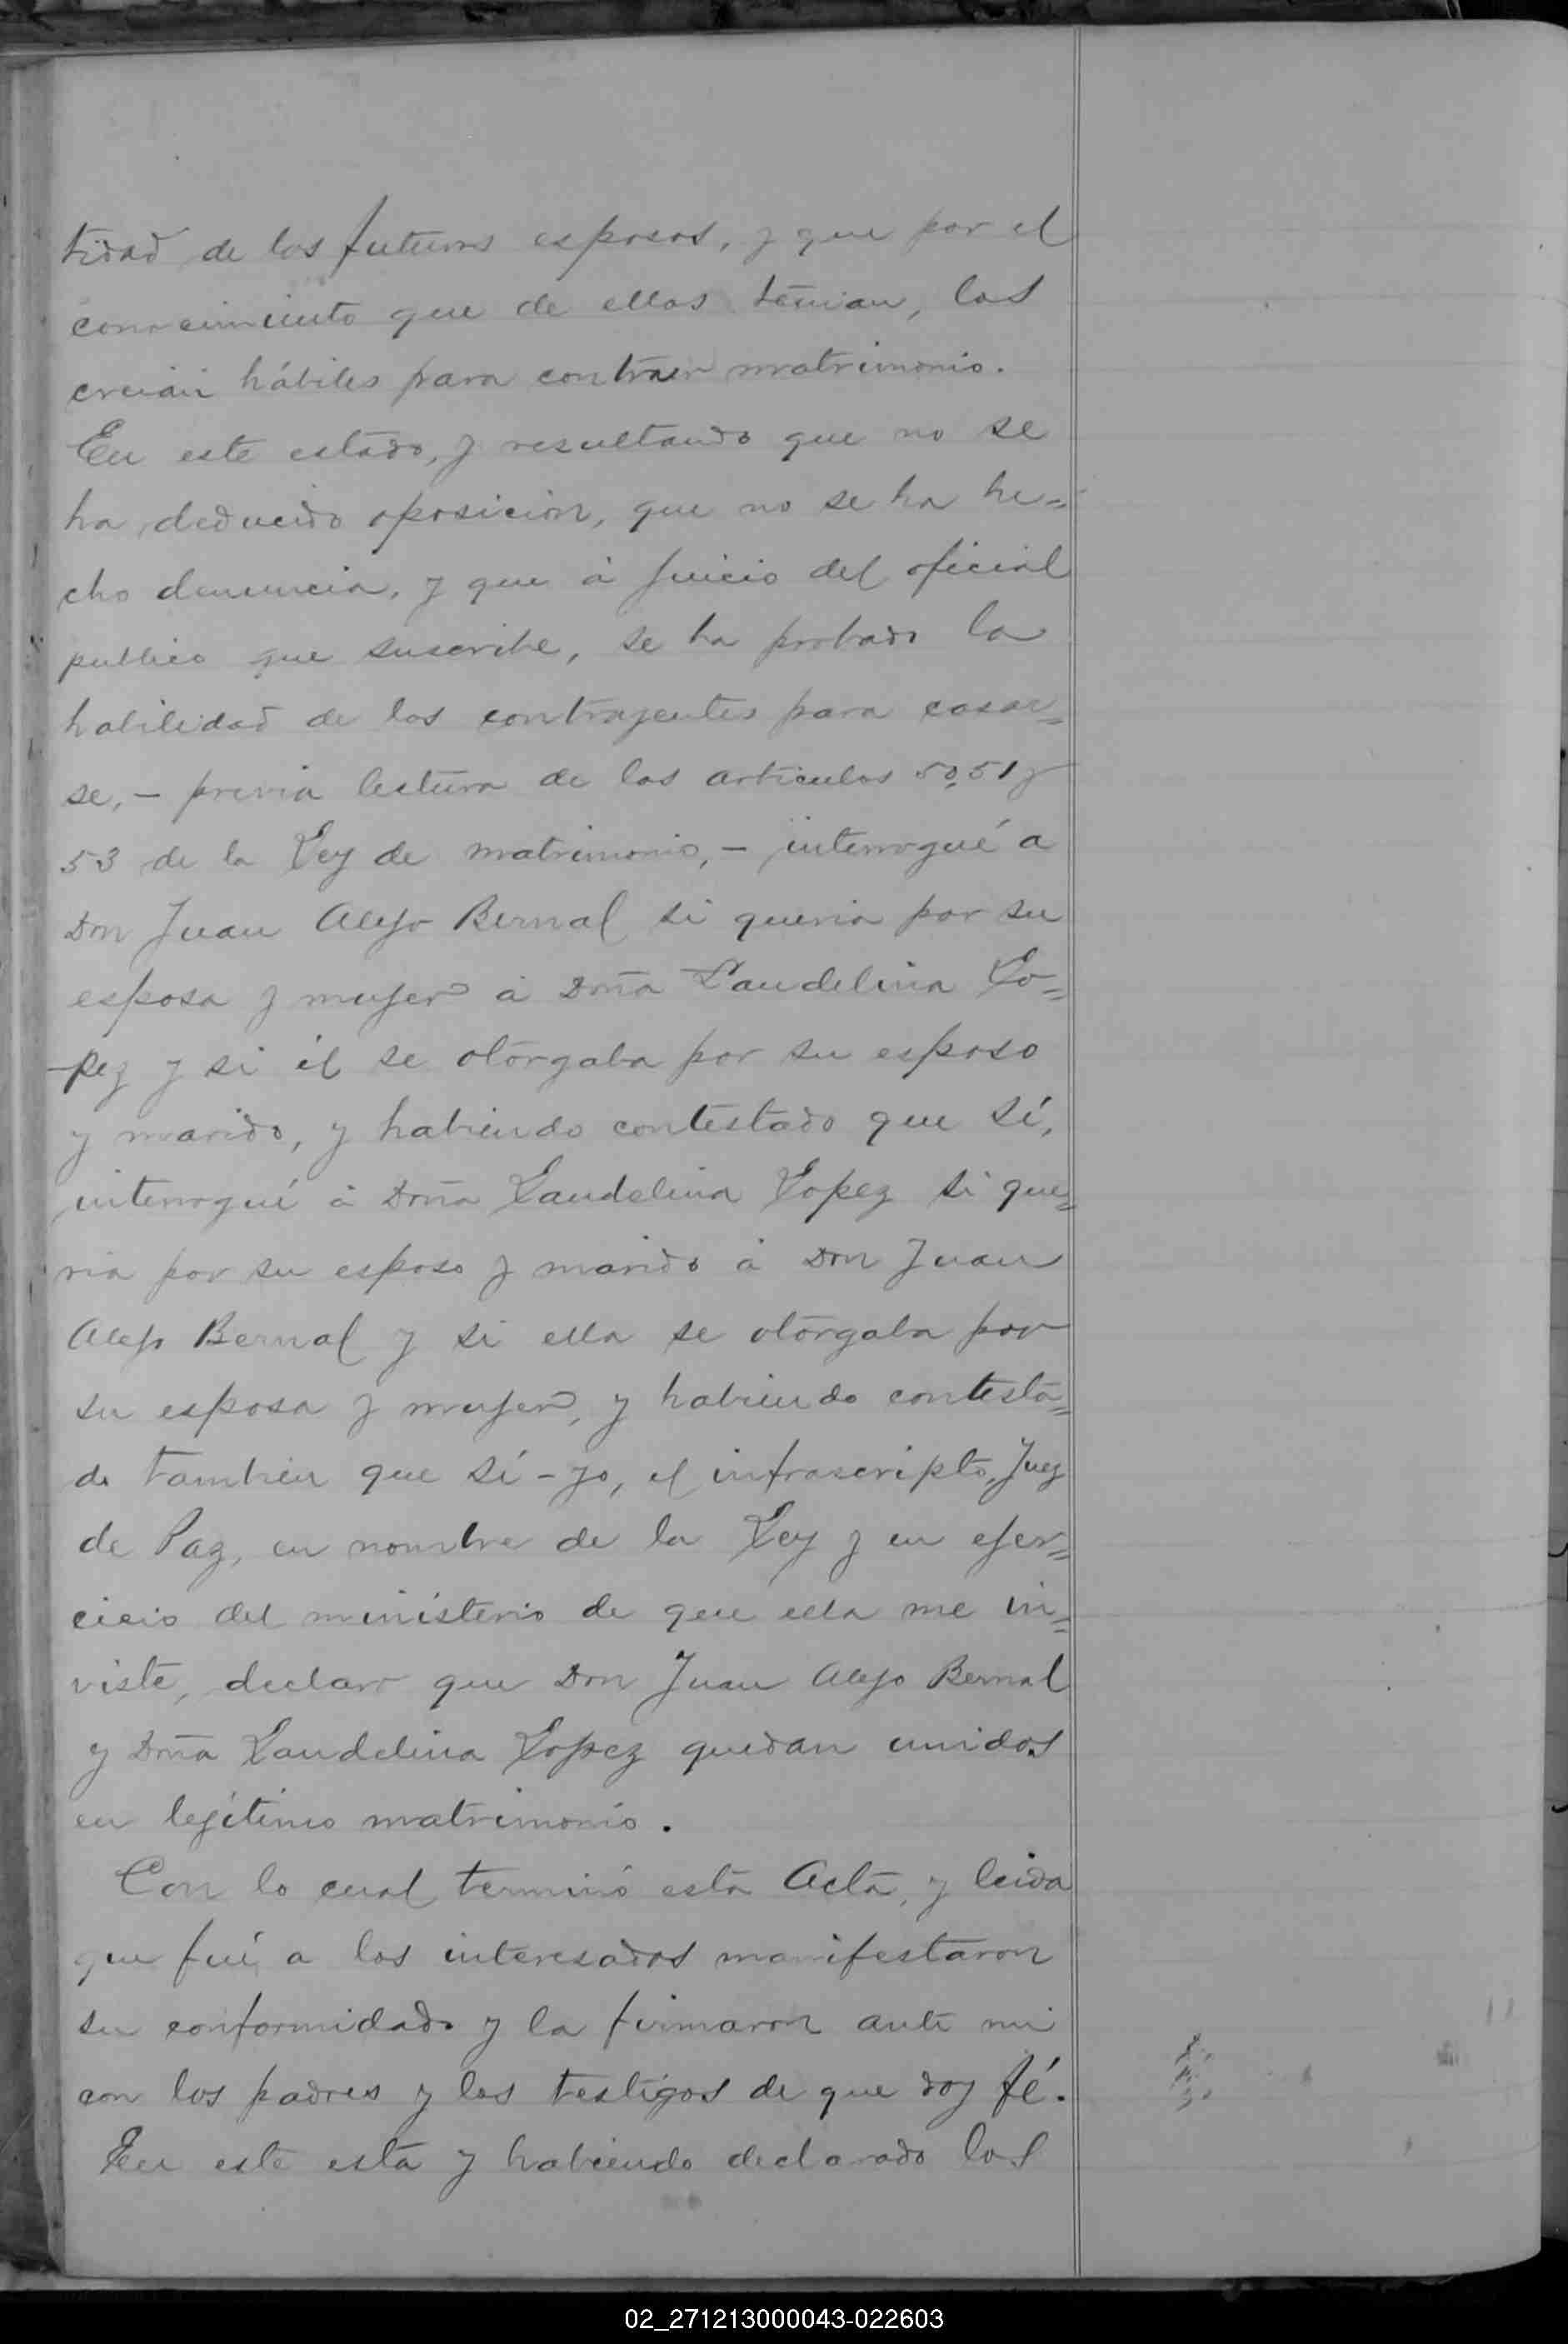 tidad de los futuros esposos, y que por el
conocimiento que de ellos tenian, los
creian hábiles para contraer matrimonio.
En este estado, y resultando que no se
ha deducido oposicion, que no se ha he=
cho denuncia, y que á juicio del oficial
publico que suscribe, se ha probado la
habilidad de los contrayentes para casar=
se, – previa lectura de los articulos 50, 51 y
53 de la Ley de matrimonio, – interrogué a
Don Juan Alejo Bernal si queria por su
esposa y mujer á Doña Laudelina Lo=
pez y si él se otorgaba por su esposo
y marido, y habiendo contestado que sí,
interrogué á Doña Laudelina Lopez si que=
ria por su esposo y marido á Don Juan
Alejo Bernal y si ella se otorgaba por
su esposa y mujer, y habiendo contesta=
do tambien que sí – yo, el infrascripto, Juez
de Paz, en nombre de la Ley y en ejer=
cicio del ministerio de que ella me in=
viste, declaro que Don Juan Alejo Bernal
y Doña Laudelina Lopez quedan unidos
en legitimo matrimonio.
Con lo cual terminó esta Acta, y leida
que fué a los interesados manifestaron
su conformidad y la firmaron ante mi
con los padres y los testigos de que doy fé.
En este esta y habiendo declarado los
02_271213000043-022603